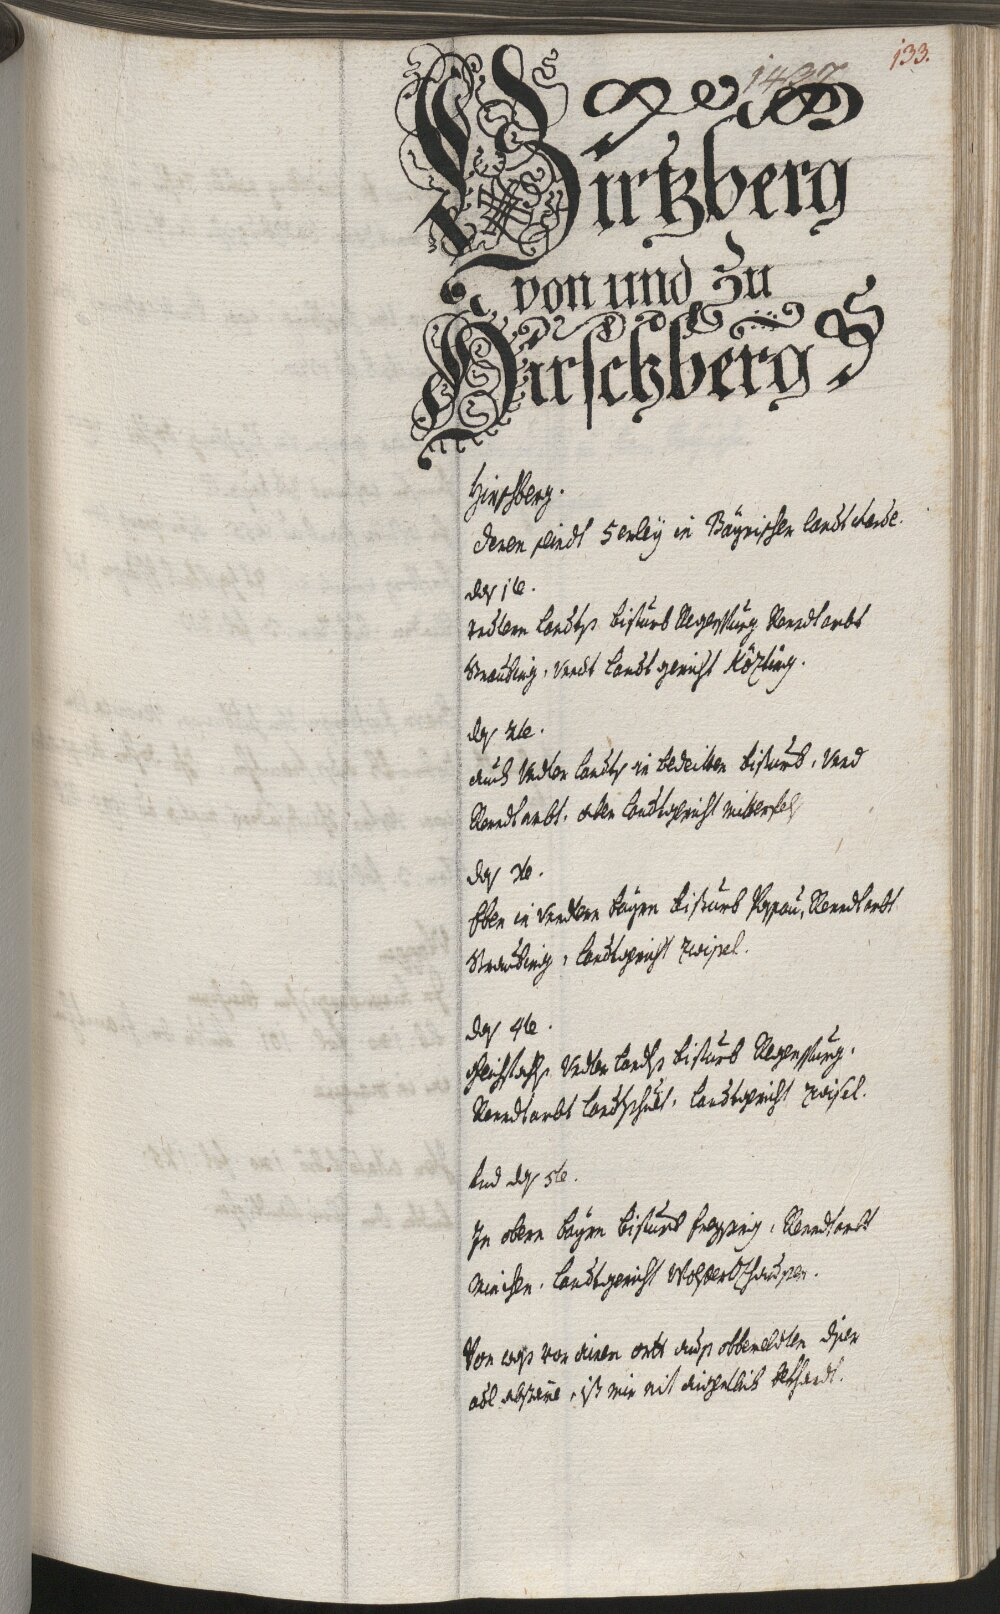 133.
1497
Hirtzberg
von und Zu
Hirschberg
Hirschberg.
deren seindt 5erleÿ in Baÿrischen Landt
das 1te.
Undtern Landts bistumb Regenspurg Renndtambt
Straubing, Landtgericht Közting.
das 2te.
auch Undter Landts in bistumb, Und
Renndtambt, aber Landtgericht mitterfels
das 3te.
Eben in Undtern baÿrn bistumb Passau, Renndtambt
Straubing, Landtgericht zwisel.
das 4te.
Undter Landts bistumb Regenspurg,
Renndtambt Landtshuet, Landtgericht zwisel.
Und das 5te.
In obern baÿrn bistumb freysing, Renndtambt
München, Landtgericht Wolfertshausen.
Von was vor einen orth auss diser
adl, ist mir nit bekhandt.